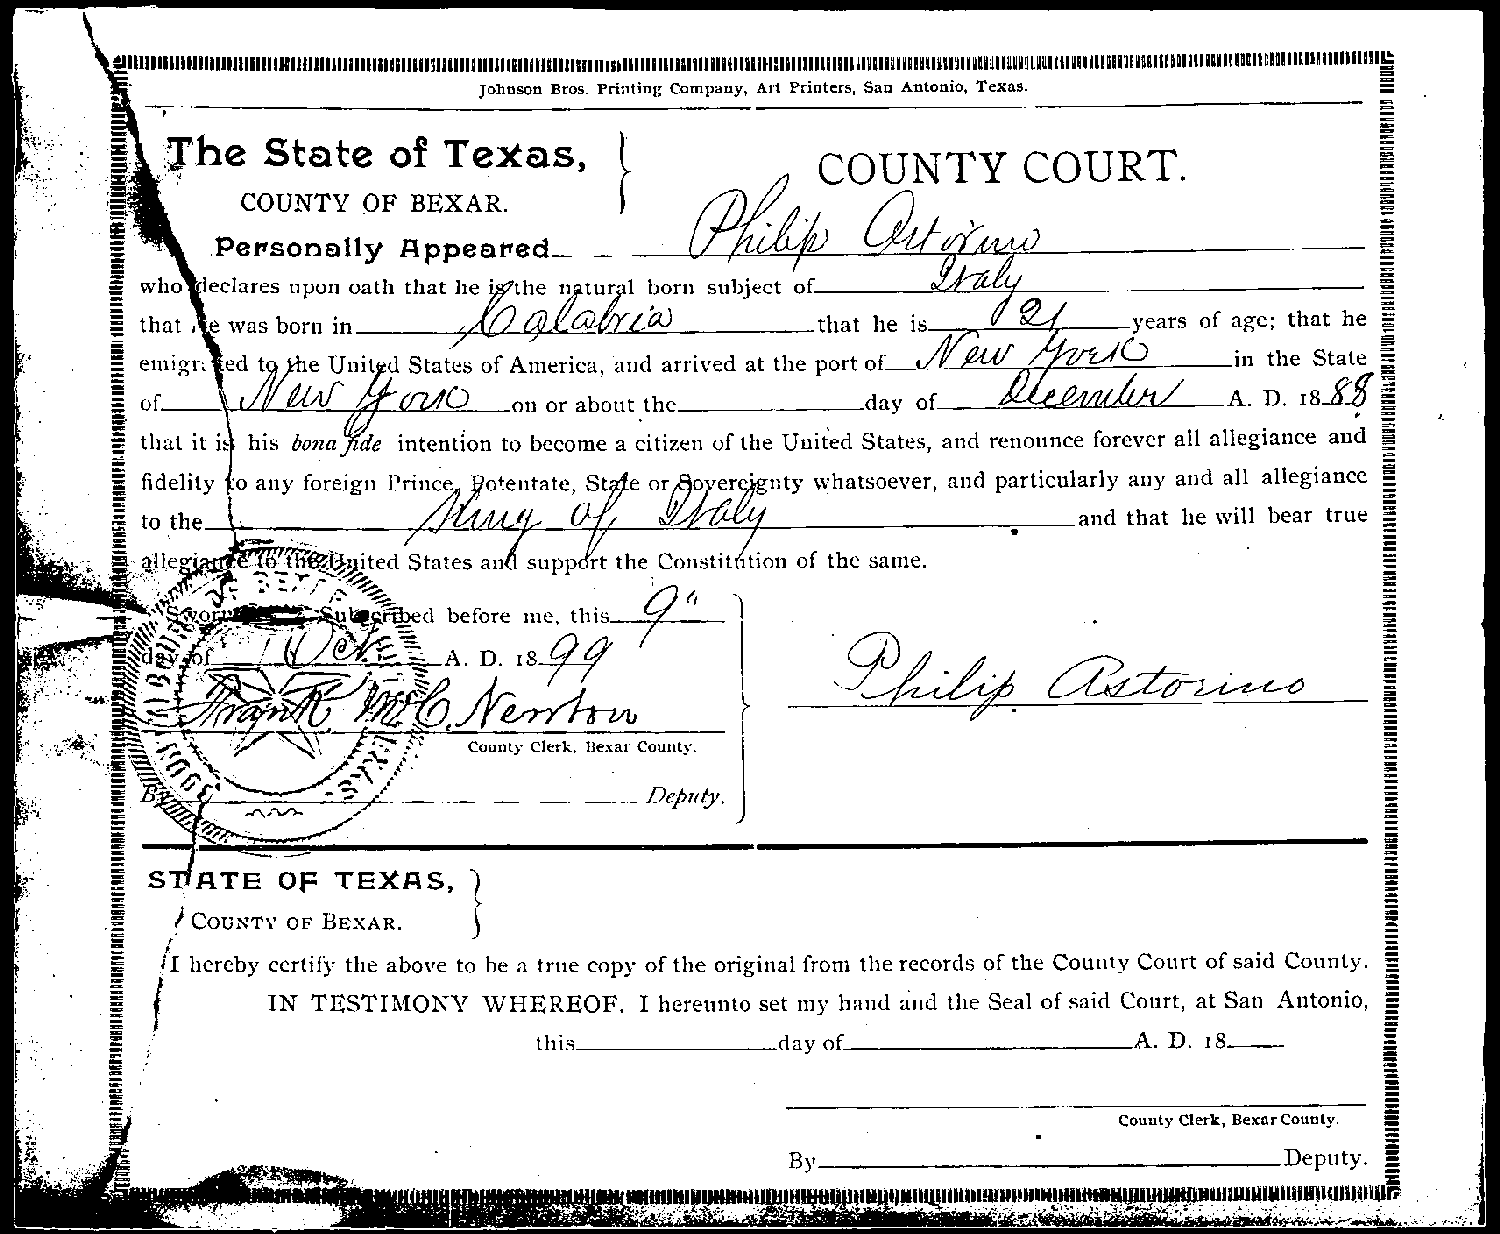 Johnson Bros. Printing Company, Art Printers, San Antonio, Texas.
The State of Texas,
COUNTY OF BEXAR.
COUNTY COURT.
Personally Appeared Philip Astorino
who declares upon oath that he is the natural born subject of Italy
that he was born in Calabria that he is 21 years of age; that he
emigrated to the United States of America, and arrived at the port of New York in the State
of New York on or about the day of December A. D. 1888
that it is his bona fide intention to become a citizen of the United States, and renounce forever all allegiance and
fidelity to any foreign Prince, Potentate, State or Sovereignty whatsoever, and particularly any and all allegiance
to the King of Italy and that he will bear true
allegiance to the United States and support the Constitution of the same.
Sworn Subscribed before me, this 9"
day of Oct A. D. 1899
Frank McC. Newton
County Clerk, Bexar County.
By Deputy.
Philip Astorino
STATE OF TEXAS,
COUNTY OF BEXAR.
I hereby certify the above to be a true copy of the original from the records of the County Court of said County.
IN TESTIMONY WHEREOF, I hereunto set my hand and the Seal of said Court, at San Antonio,
this day of A. D. 18
County Clerk, Bexar County.
By Deputy.